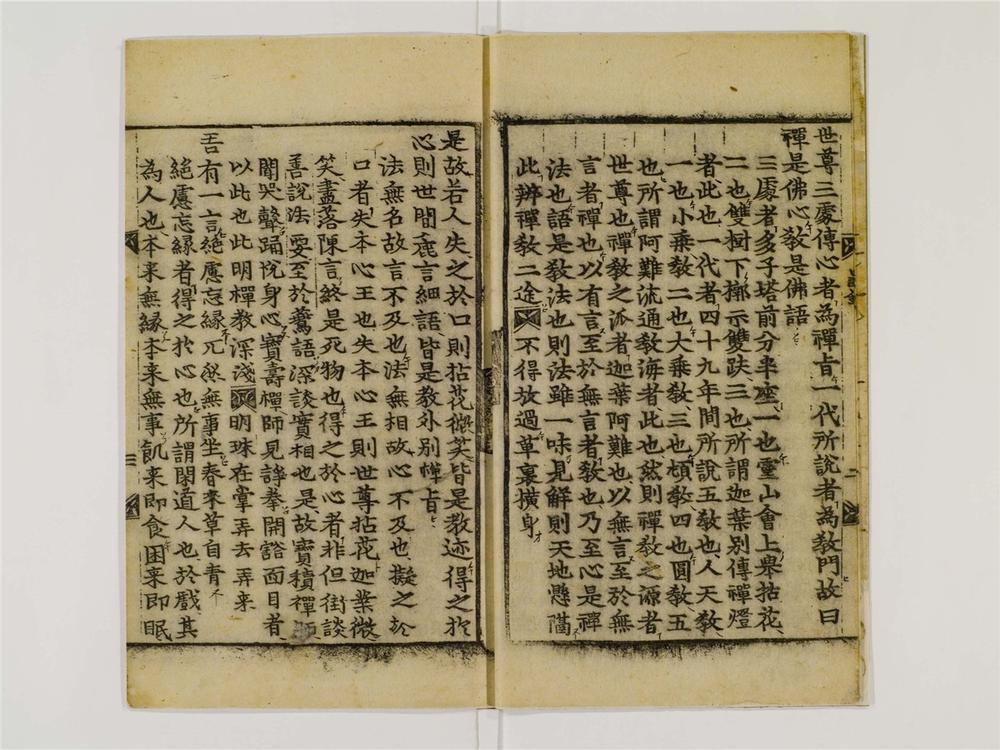 世尊三處傳心者為禪旨一代所說者為敎門故曰
禪是佛心敎是佛語
三處者多子塔前分半座一也靈山會上擧拈花
二也雙樹下槨示雙趺三也所謂迦葉別傳禪燈
者此也一代者四十九年間所說五敎也人天敎
一也小乘敎二也大乘敎三也頓敎四也圓敎五
也所謂阿難流通敎海者此也然則禪敎之源者
世尊也禪敎之派者迦葉阿難也以無言至於無
言者禪也以有言至於無言者敎也乃至心是禪
法也語是敎法也則法雖一味見解則天地懸隔
此辨禪敎二途 不得放過草裏橫身
是故若人失之於口則拈花微笑皆是敎迹得之於
心則世間麁言細語皆是敎外別禪旨
法無名故言不及也法無相故心不及也擬之於
口者失本心王也失本心王則世尊拈花迦葉微
笑盡落陳言終是死物也得之於心者非但街談
善說法要至於鷰語深談實相也是故寶積禪師
聞哭聲踊悅身心寶壽禪師見諍拳開豁面目者
以此也此明禪敎深淺 明珠在掌弄去弄來
吾有一言絕慮忘緣兀然無事坐春來草自靑
絕慮忘緣者得之於心也所謂閑道人也於戲其
為人也本来無緣本来無事飢来即食困来即眠